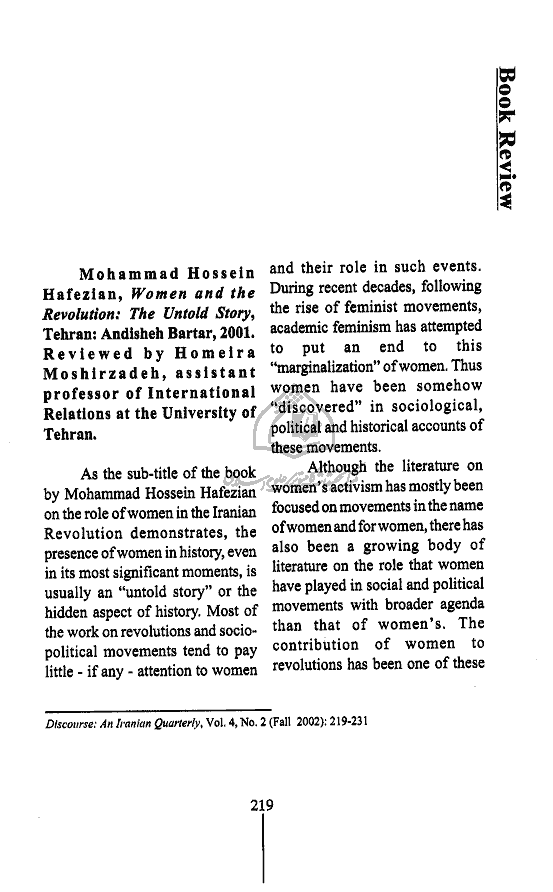 Book Review
Mohammad Hossein
Hafezian, Women and the
Revolution: The Untold Story,
Tehran: Andisheh Bartar, 2001.
Reviewed by Homeira
Moshirzadeh, assistant
professor of International
Relations at the University of
Tehran.
As the sub-title of the book
by Mohammad Hossein Hafezian
on the role of women in the Iranian
Revolution demonstrates, the
presence of women in history, even
in its most significant moments, is
usually an “untold story” or the
hidden aspect of history. Most of
the work on revolutions and socio-
political movements tend to pay
little - if any - attention to women
and their role in such events.
During recent decades, following
the rise of feminist movements,
academic feminism has attempted
to put an end to this
“marginalization” of women. Thus
women have been somehow
“discovered” in sociological,
political and historical accounts of
these movements.
Although the literature on
women's activism has mostly been
focused on movements in the name
of women and for women, there has
also been a growing body of
literature on the role that women
have played in social and political
movements with broader agenda
than that of women's. The
contribution of women to
revolutions has been one of these
Discourse: An Iranian Quarterly, Vol. 4, No. 2 (Fall 2002): 219-231
219